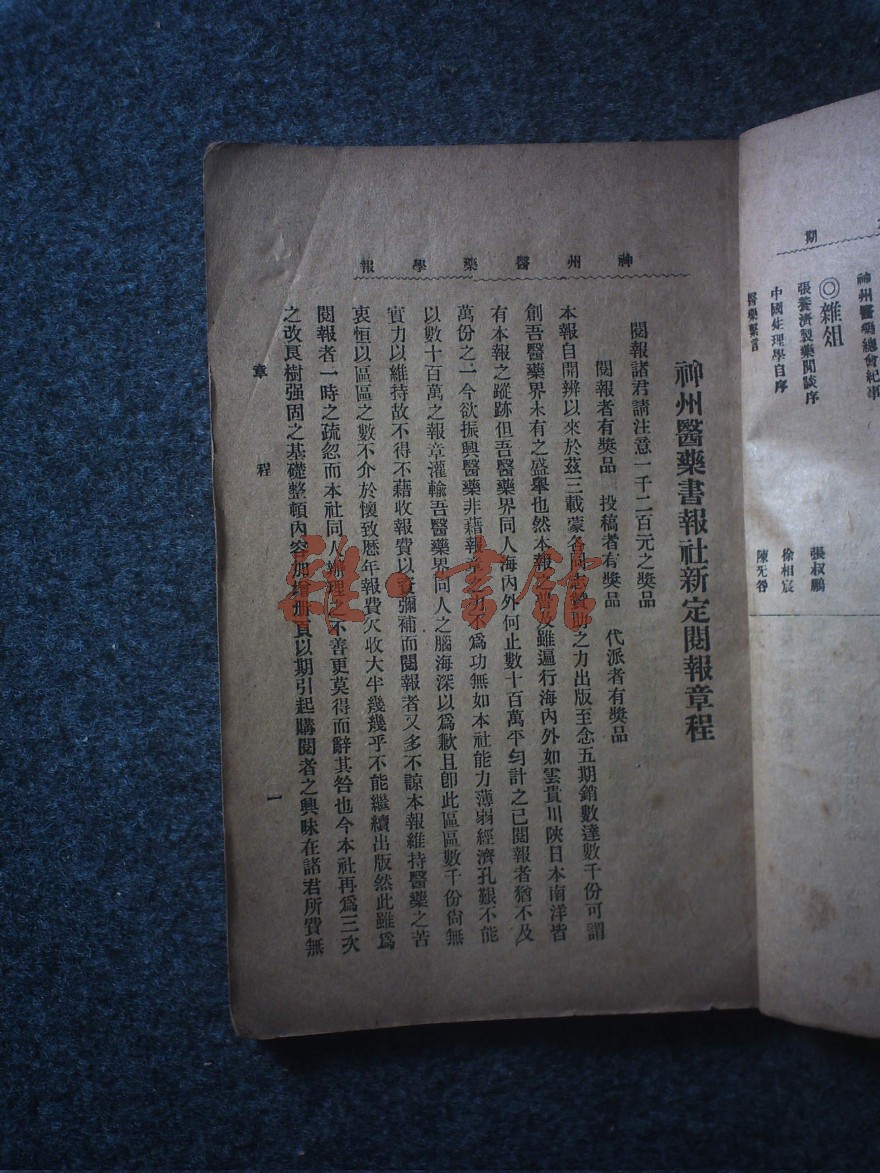 神州醫藥學報
神州醫藥書報社新定閱報章程
閱報諸君請注意一千二百元之獎品
閱報者有獎品 投稿者有獎品 代派者有獎品
本報自開辦以來於茲三載蒙各同志贊助之力出版至念五期銷數達數千份可謂
創吾醫藥界未有之盛舉也然本報之 及雖遍行海內外如雲貴川陝日本南洋皆
有本報之蹤跡但吾醫藥界同人海內外何止數十百萬平均計之已閱報者猶不及
萬份之一今欲振興醫藥非藉報章之力不爲功無如本社能力薄弱經濟孔艱不能
以數十百萬之報章灌輸吾醫藥界同人之腦海深以爲歉且卽此區區數千份尙無
實力以維持故不得不藉收報費以資彌補而閱報者又多不諒本報維持醫藥之苦
衷恒以區區之數不介於懷致歷年報費欠收大半幾幾乎不能繼續出版然此雖爲
閱報者一時之疏忽而本社同人辦理之不善更莫得而辭其咎也今本社再爲三次
之改良樹强固之基礎整頓內容加增册頁以期引起購閱者之興味在諸君所費無
章程
一
期
神州醫藥總會紀事
◎雜俎
張養濟製藥閒談序
張叔鵬
中國生理學自序
徐相宸
醫藥繁言
陳旡咎
雜 書館